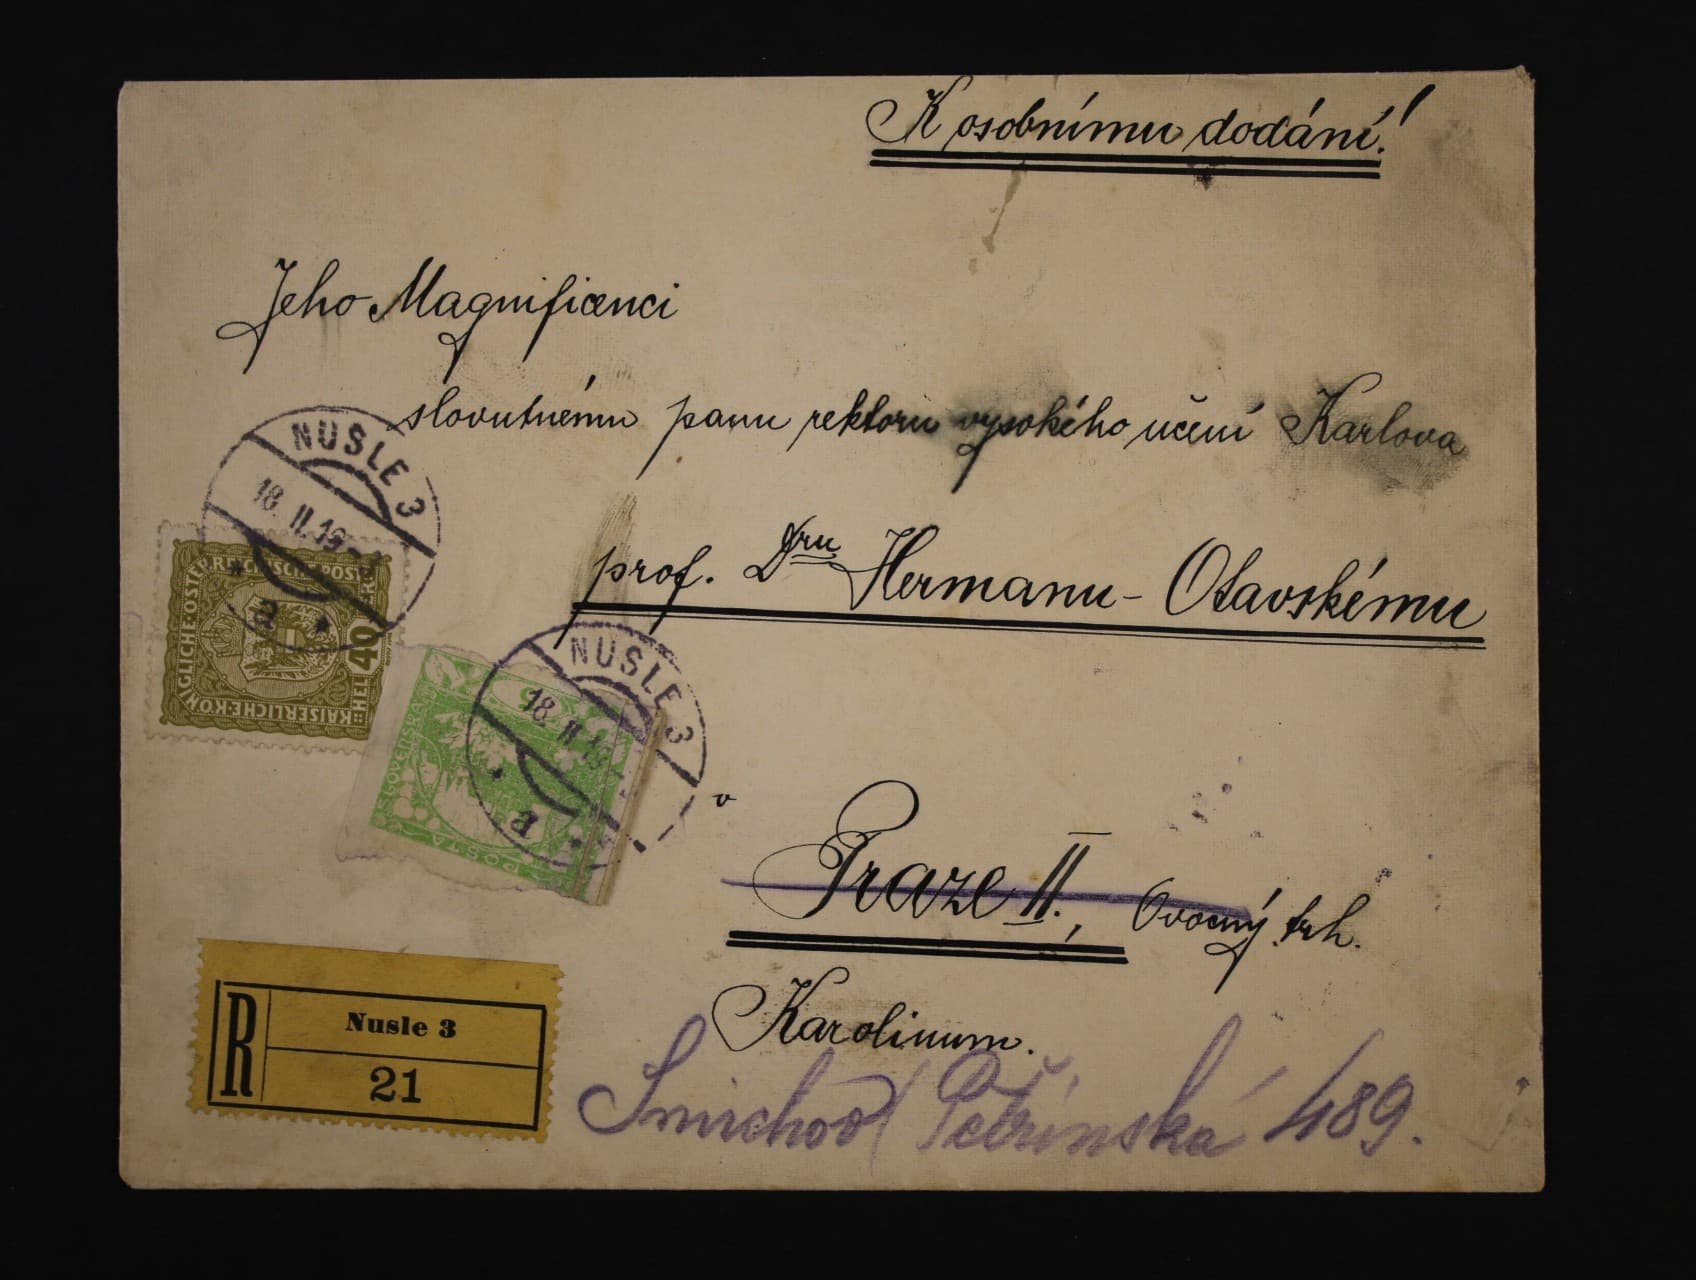 K osobnímu dodání!
Jeho Magnificenci
slovutnému panu rektoru vysokého učení Karlova
prof. Dru Hermanu-Otavskému
v
Praze II., Ovocný trh.
Karolinum.
Smíchov Petřínská 489.
NUSLE 3
18. II. 19
a
KAISERLICHE·KÖNIGLICHE·ÖSTERREICHISCHE POST
40 HELLER
NUSLE 3
18. II. 19
a
POŠTA
SLOVENSKÁ
R
Nusle 3
21